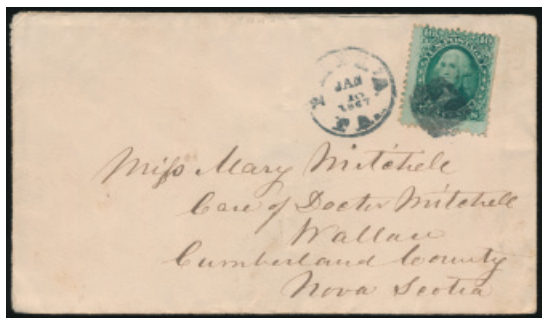 JAN
1867
PA.
Miss Mary Mitchell
Care of Doctor Mitchell
Wallace
Cumberland County
Nova Scotia